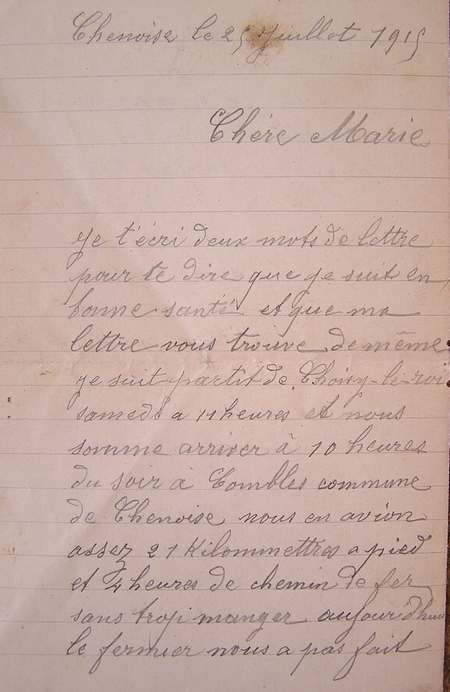 Chenoise le 25 Juillet 1915
Chére Marie
Je t'écri deux mots de lettre
pour te dire que je suit en
bonne santé et que ma
lettre vous trouve de même
je suit partit de Choisy-le-roi
samedi a 11 heures et nous
somme arriver à 10 heures
du soir à Combles commune
de Chenoise nous en avion
assez 21 Kilommettres a pied
et heures de chemin de fer
sans trop manger aujourd'hui
le fermier nous a pas fait